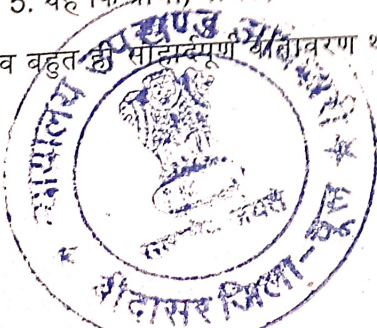 5. यह कि
व बहुत ही सौहार्दपूर्ण वातावरण थ
न्यायालय उपखण्ड अधिकारी
सत्यमेव जयते
बीदासर जिला-चूरू